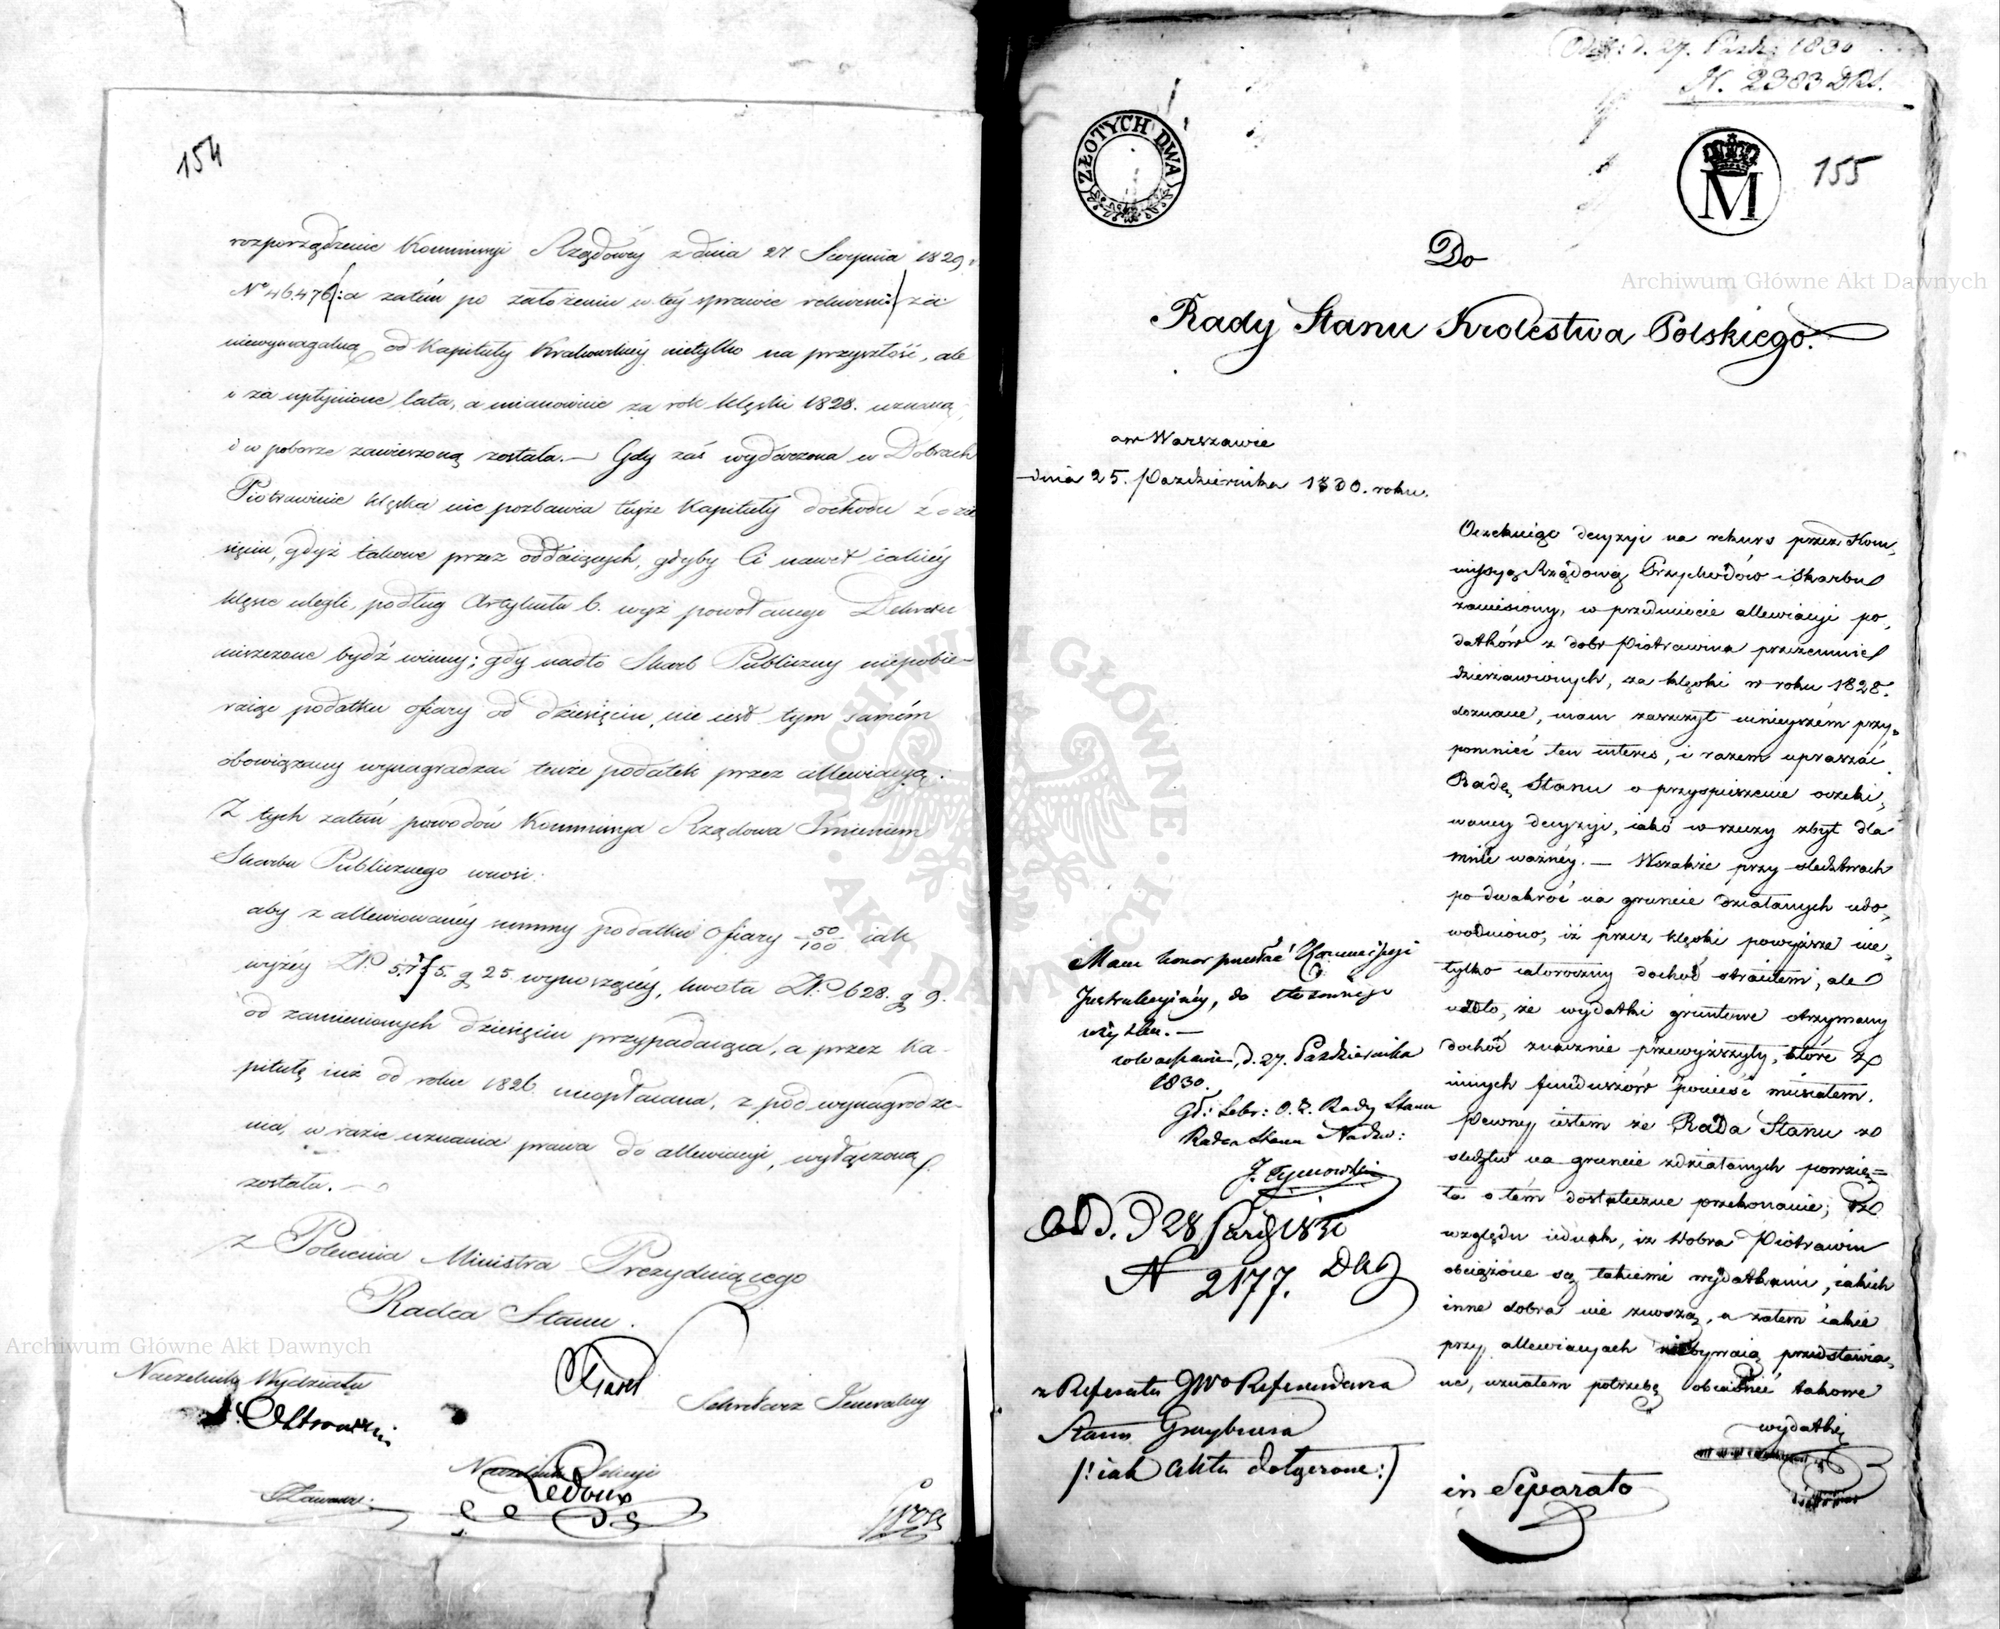 154
rozporządzenie Kommissyi Rządowéy z dnia 27 Sierpnia 1829
Nº 46.476 /: a zatém po założeniu w téy sprawie rekursu :/ za
niewymagalną od Kapituły Krakowskiéy nietylko na przyszłość, ale
i za upłynione lata, a mianowicie za rok klęski 1828. uznaną,
i w poborze zawieszoną została. — Gdy zaś wydarzona w Dobrach
Piotrawinie klęska nie pozbawia teyże Kapituły dochodu z dzie
sięcin, gdyż takowe przez oddaiących, gdyby Ci nawet iakiéy
klęsce ulegli, podług Artykułu 6. wyż powołanego Dekretu
uiszczone bydź winny; gdy nadto Skarb Publiczny niepobie-
raiąc podatku ofiary od dziesięcin, nie iest tym samém
obowiązany wynagradzać tenże podatek przez allewiacyą.
Z tych zatém powodów Kommissya Rządowa Imieniem
Skarbu Publicznego wnosi:
aby z allewiowanéy summy podatku ofiary 50/100 iak
wyżéy Złp. 5.175. g 25. wynoszącéy, kwota Złp. 628. g 9.
od zamienionych dziesięcin przypadaiąca, a przez Ka-
pitułę iuż od roku 1826. nieopłacana, z pod wynagrodze-
nia, w razie uznania prawa do allewiacyi, wyłączoną
została. —
z Polecenia Ministra Prezyduiącego
Radca Stanu.
Naczelnik Wydziału
Sekretarz Jeneralny
Naczelnik Sekcyi
Ledoux
Odeb: d. 27. Paźdz: 1830
N. 2383 Dkl.
ZŁOTYCH DWA
M
155
Do
Rady Stanu Krolestwa Polskiego.
w Warszawie
dnia 25. Pazdziernika 1830. roku.
Oczekuiąc decyzyi na rekurs przez Kom,
missyą Rządową Przychodów i Skarbu
zaniesiony, w przedmiocie allewiacyi po,
datków z dobr Piotrawina przezemnie
dzierżawionych, za klęski w roku 1828.
doznane, mam zaszczyt ninieyszém przy,
pomnieć ten interes, i razem upraszać
Radę Stanu o przyspieszenie oczeki,
waney decyzyi, iako w rzeczy zbyt dla
mnie ważnéy. — Wszakże przy śledztwach
po dwakroć na gruncie działanych udo,
wodniono, iż przez klęski powyższe nie
tylko całoroczny dochód straciłem, ale
nadto, że wydatki gruntowe otrzymany
dochód znacznie przewyższyły, które z
innych funduszów ponieść musiałem.
Pewny iestem że Rada Stanu ze
śledztw na gruncie zdziałanych powzię=
ła o tém dostateczne przekonanie; ze
względu iednak, iż dobra Piotrawin
obciążone są takiemi wydatkami, iakich
inne dobra nie znoszą, a zatem iakie
przy allewiacyach niebywaią przedstawia,
ne, uznałem potrzebę obiaśnić takowe
wydatki
in Separato
Mam honor przesłać Kommissyi
Instrukcyinéy, do stosownego
użytku. —
w Warszawie, d. 27. Pazdziernika
1830.
Gł: Sekr: O. Z. Rady Stanu
Radca Stanu Nadzw:
J. Tymowski
Od. d 28 Paźdz 1830
N 2177. Dkl
z Referatu JWo Referendarza
Stanu Grzybowskiego
/: iak akta dołączone :/
Archiwum Główne Akt Dawnych
Archiwum Główne Akt Dawnych
ARCHIWUM GŁÓWNE
AKT DAWNYCH